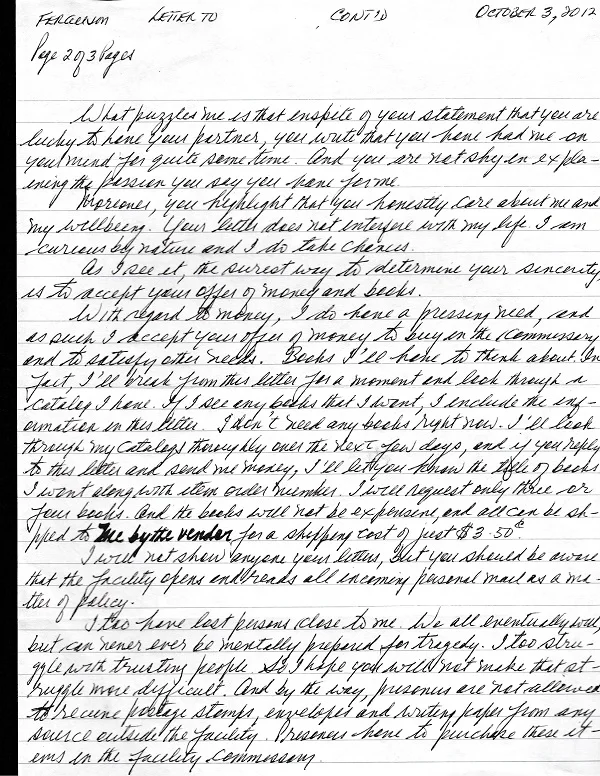 FERGUSON LETTER TO CONT'D OCTOBER 3, 2012
Page 2 of 3 Pages
What puzzles me is that enspite of your statement that you are
lucky to have your partner, you write that you have had me on
your mind for quite some time. And you are not shy in expla-
ining the passion you say you have for me.
Moreover, you highlight that you honestly care about me and
my wellbeing. Your letter does not interfere with my life. I am
curious by nature and I do take chances.
As I see it, the surest way to determine your sincerity,
is to accept your offer of money and books.
With regard to money, I do have a pressing need, and
as such I accept your offer of money, to buy in the commissary
and to satisfy other needs. Books I'll have to think about. In
fact, I'll break from this letter for a moment and look through a
catalog I have. If I see any books that I want, I include the inf-
ormation in this letter. I don't need any books right now. I'll look
through my catalogs thoroughly over the next few days, and if you reply
to this letter and send me money, I'll let you know the title of books
I want along with item order number. I will request only three or
four books. And the books will not be expensive, and all can be sh-
pped to me by the vendor for a shipping cost of just $3.50¢.
I will not show anyone your letters, but you should be aware
that the facility opens and reads all incoming personal mail as a ma-
tter of policy.
I too have lost persons close to me. We all eventually will,
but can never ever be mentally prepared for tragedy. I too stru-
ggle with trusting people. So I hope you will not make that st-
ruggle more difficult. And by the way, prisoners are not allowed
to receive postage stamps, envelopes and writing paper from any
source outside the facility. Prisoners have to purchase these it-
ems in the facility commissary.